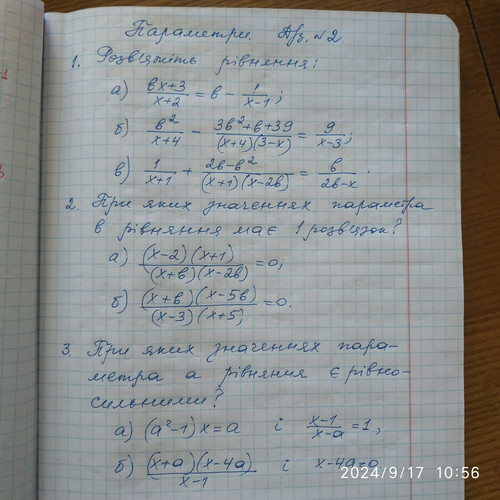 Параметри. Д/з. №2.
1. Розв'яжіть рівняння:
а) (вx+3)/(x+2) = в - 1/(x-1);
б) в²/(x+4) - (3в²+в+39)/((x+4)(3-x)) = 9/(x-3);
в) 1/(x+1) + (2в-в²)/((x+1)(x-2в)) = в/(2в-x).
2. При яких значеннях параметра
в рівняння має 1 розв'язок?
а) ((x-2)(x+1))/((x+в)(x-2в)) = 0;
б) ((x+в)(x-5в))/((x-3)(x+5)) = 0.
3. При яких значеннях пара-
метра а рівняння є рівно-
сильними?
а) (a²-1)x = a і (x-1)/(x-a) = 1,
б) ((x+a)(x-4a))/(x-1) і x-4a=0
2024/9/17 10:56